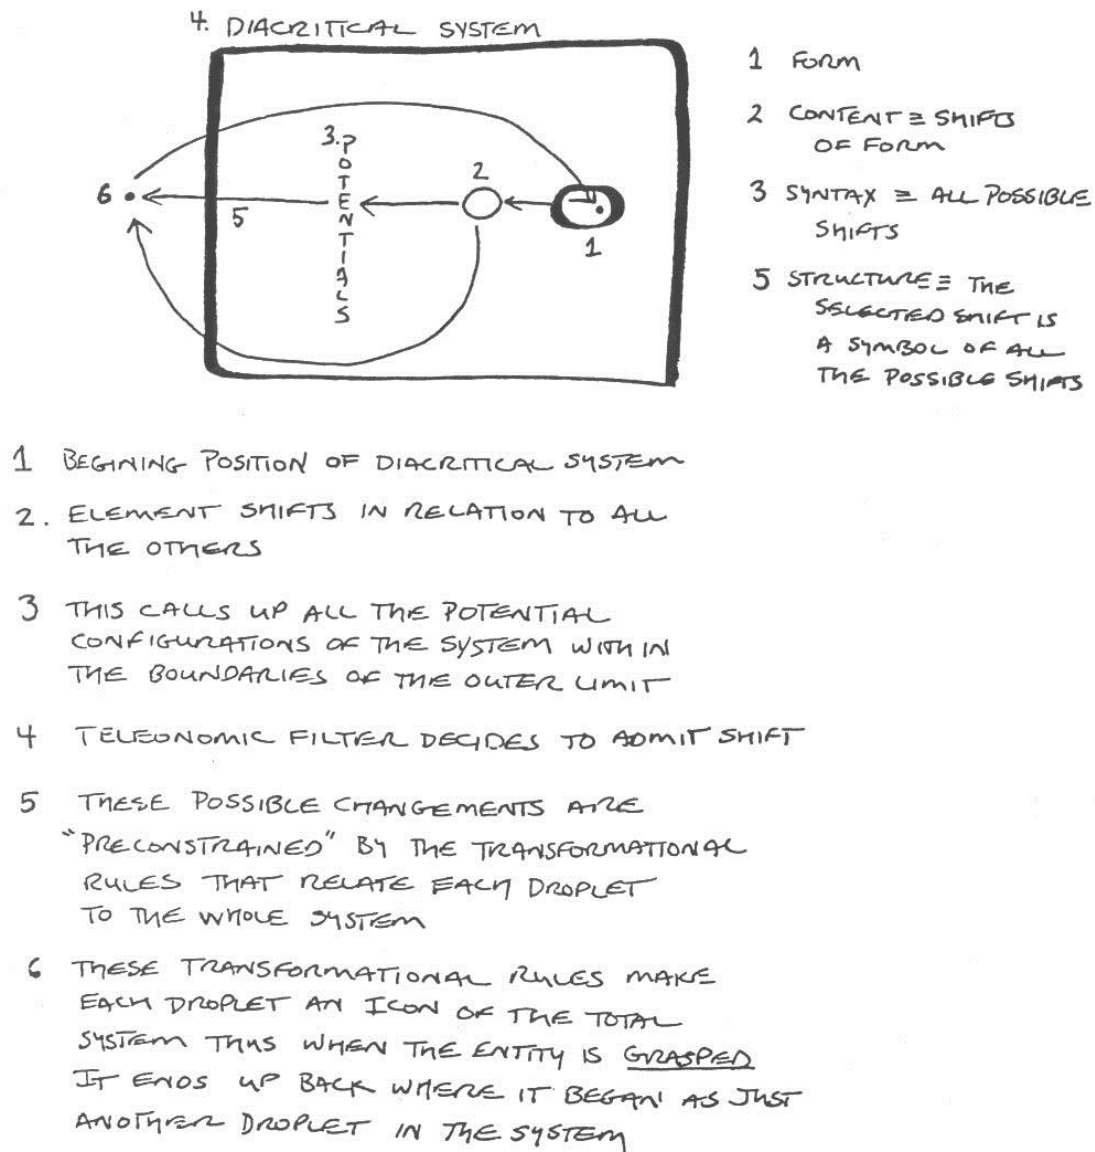 4. DIACRITICAL SYSTEM
3. POTENTIALS
2
6
5
1
1 FORM
2 CONTENT ≡ SHIFTS
OF FORM
3 SYNTAX ≡ ALL POSSIBLE
SHIFTS
5 STRUCTURE ≡ THE
SELECTED SHIFT IS
A SYMBOL OF ALL
THE POSSIBLE SHIFTS
1 BEGINING POSITION OF DIACRITICAL SYSTEM
2. ELEMENT SHIFTS IN RELATION TO ALL
THE OTHERS
3 THIS CALLS UP ALL THE POTENTIAL
CONFIGURATIONS OF THE SYSTEM WITH IN
THE BOUNDARIES OF THE OUTER LIMIT
4 TELEONOMIC FILTER DECIDES TO ADMIT SHIFT
5 THESE POSSIBLE CHANGEMENTS ARE
"PRECONSTRAINED" BY THE TRANSFORMATIONAL
RULES THAT RELATE EACH DROPLET
TO THE WHOLE SYSTEM
6 THESE TRANSFORMATIONAL RULES MAKE
EACH DROPLET AN ICON OF THE TOTAL
SYSTEM THUS WHEN THE ENTITY IS GRASPED
IT ENDS UP BACK WHERE IT BEGAN AS JUST
ANOTHER DROPLET IN THE SYSTEM